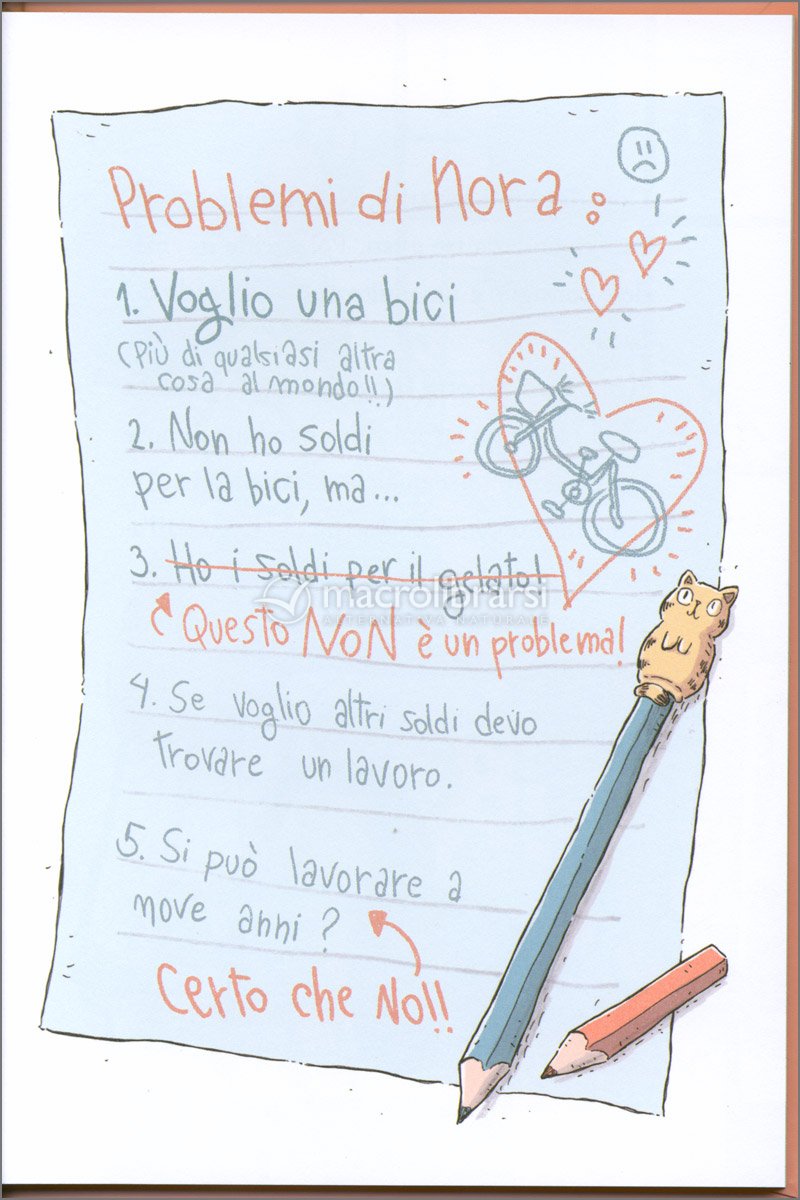 Problemi di Nora:
1. Voglio una bici
(Più di qualsiasi altra
cosa al mondo!!)
2. Non ho soldi
per la bici, ma...
3. Ho i soldi per il gelato!
macrolibrarsi
ALTERNATIVA NATURALE
Questo NON è un problema!
4. Se voglio altri soldi devo
trovare un lavoro.
5. Si può lavorare a
nove anni?
Certo che NO!!